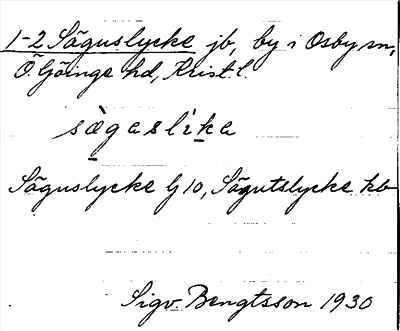 1-2 Säguslycke jb, by i Osby sn,
Ö. Göinge hd, Krist. l.
sä̀gaslíka
Säguslycke Gj 10, Sägutslycke kb
Sigv. Bengtsson 1930